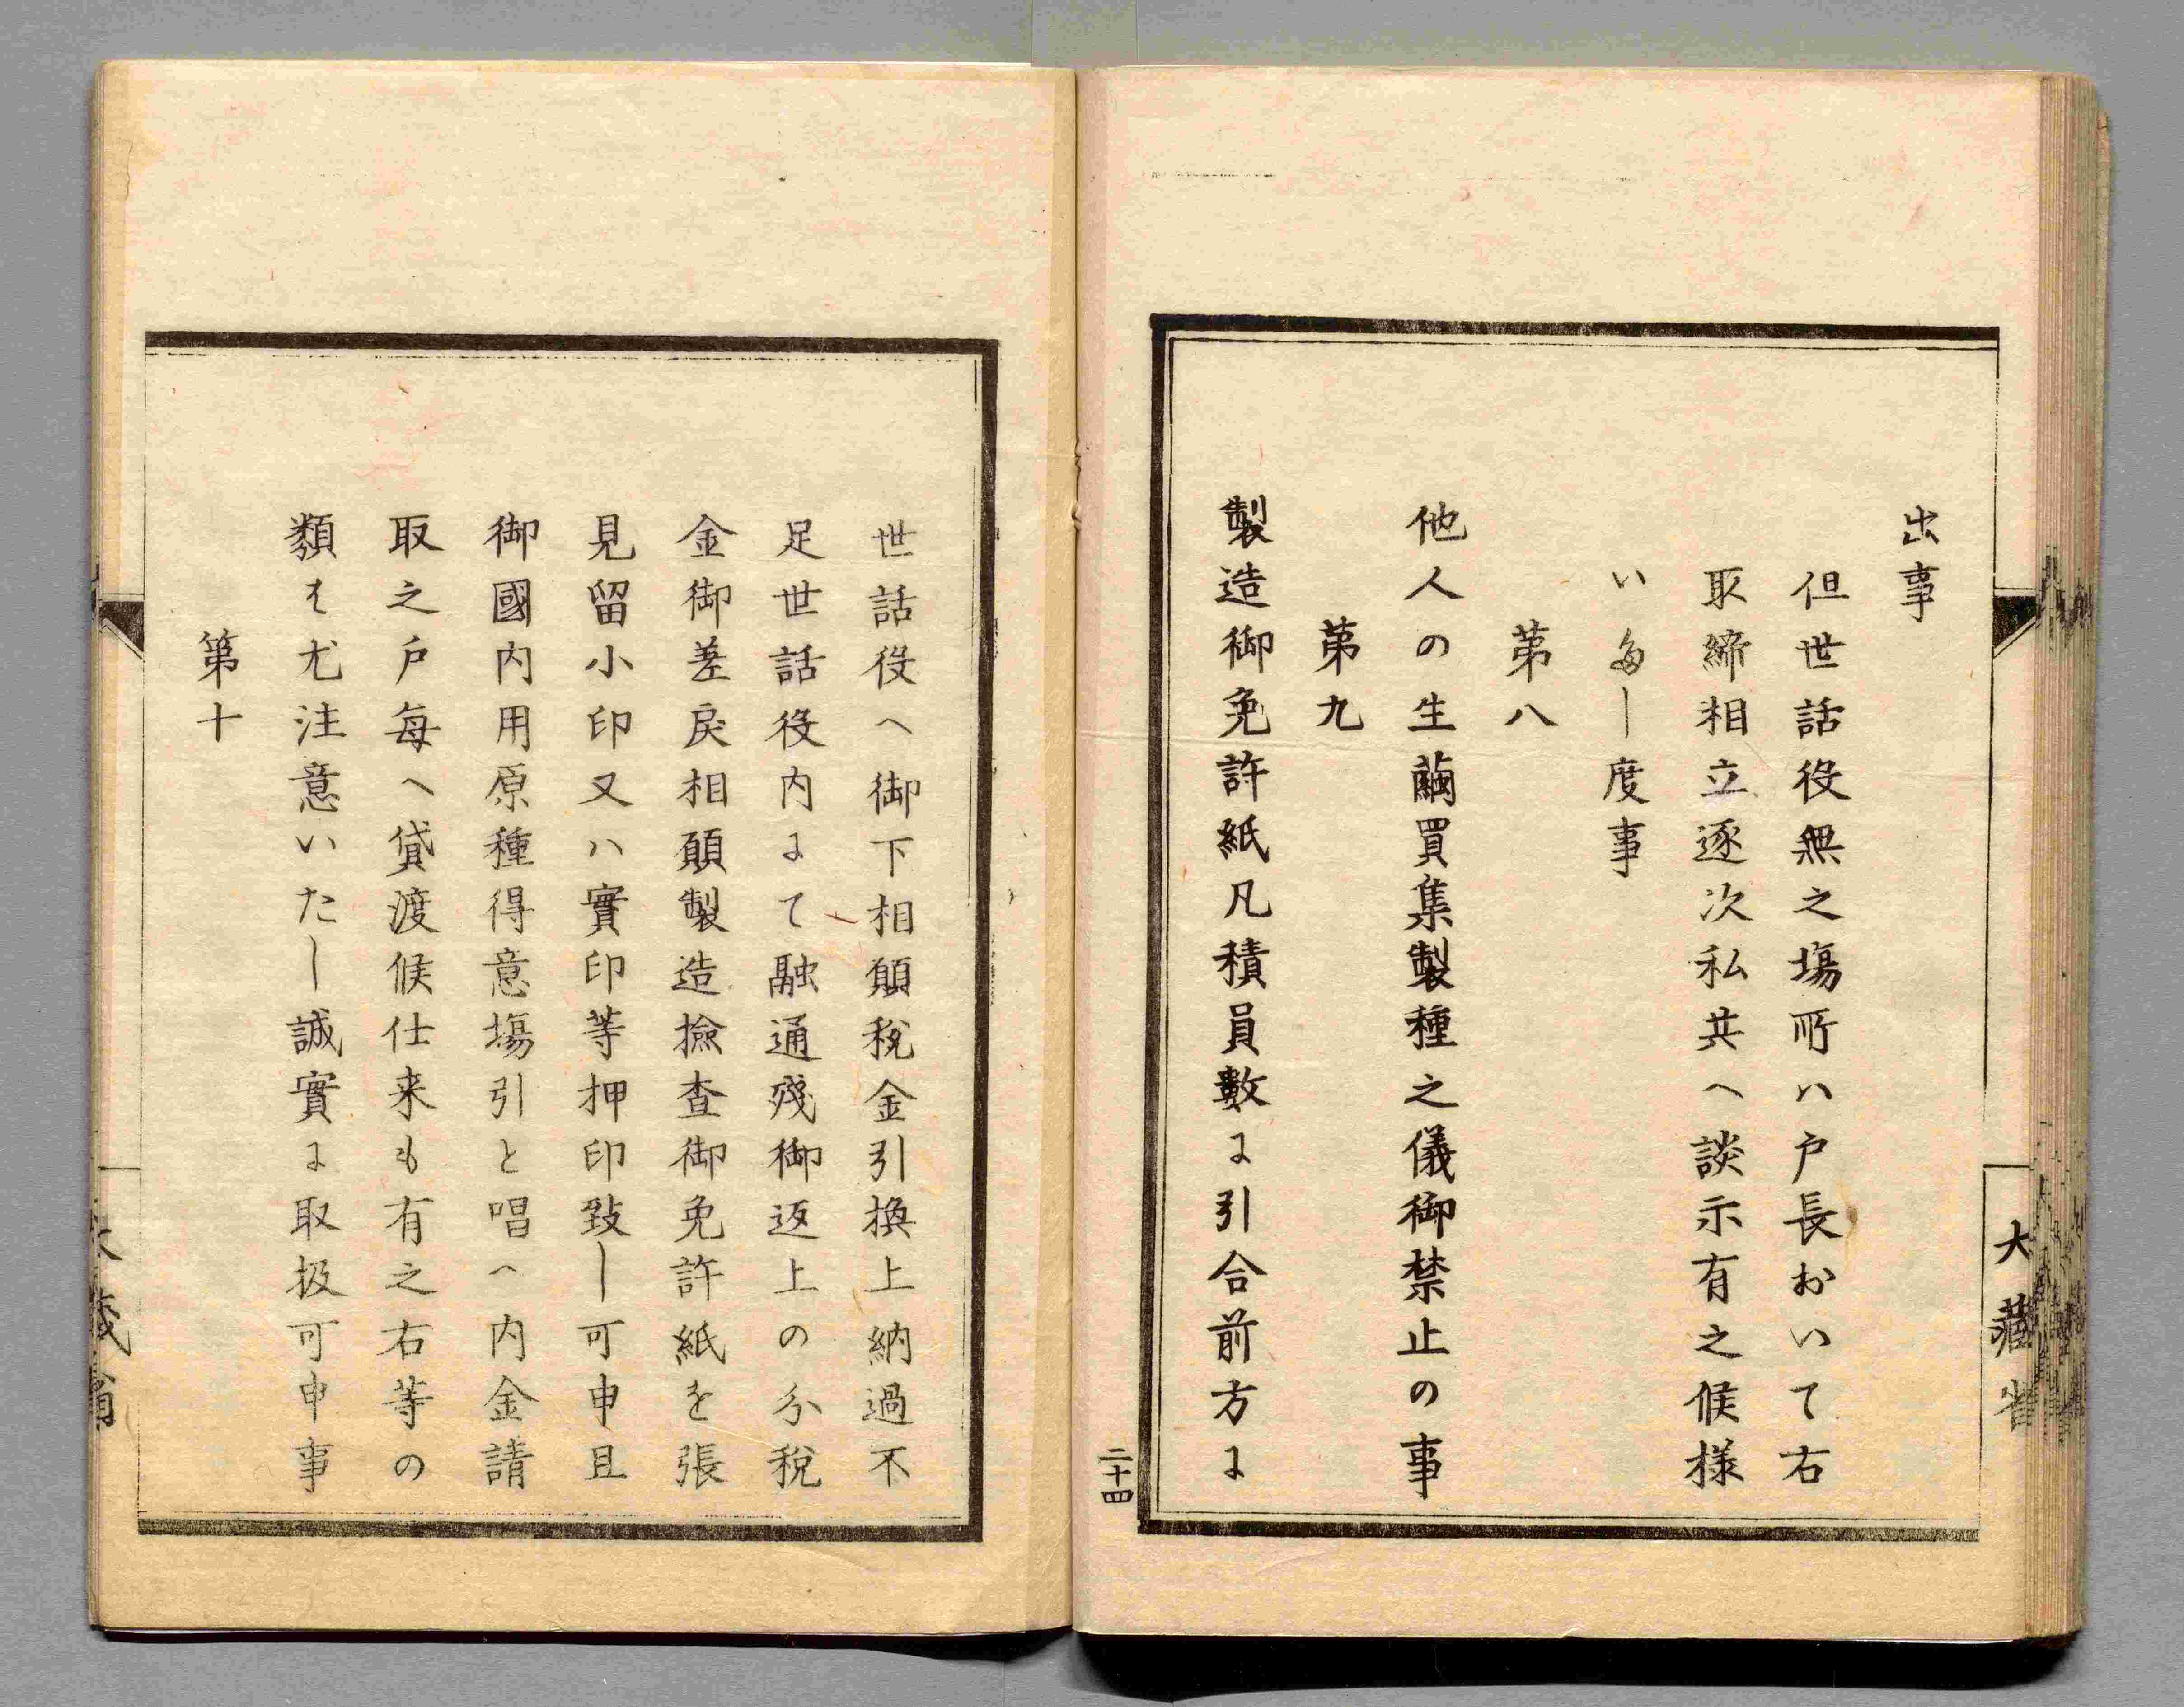 出事
但世話役無之塲所ハ戸長おいて右
取締相立逐次私共へ談示有之候様
いたし度事
第八
他人の生繭買集製種之儀御禁止の事
第九
製造御免許紙凡積員數に引合前方に
大藏省
二十四
世話役へ御下相願税金引換上納過不
足世話役内にて融通殘御返上の分税
金御差戻相願製造撿査御免許紙を張
見留小印又ハ實印等押印致し可申且
御國内用原種得意塲引と唱へ内金請
取之戸毎へ貸渡候仕来も有之右等の
類は尤注意いたし誠實に取扱可申事
第十